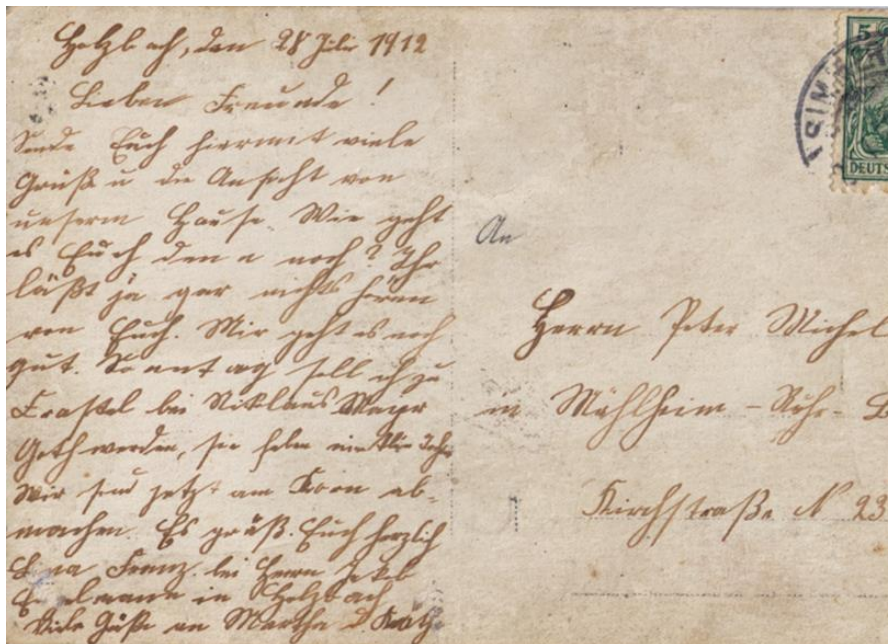 Holzbach, den 28 Juli 1912
Lieben Freunde!
Sende Euch hiermit viele
Grüß u die Ansicht von
unserm Hause. Wie geht
es Euch den n noch? Ihr
läßt ja gar nichts hören
von Euch. Mir geht es noch
gut. Sonntag soll ich zu
bei Niklaus Mayr
Goth werden, sie haben
Wir sind jetzt am Korn ab-
machen. Es grüß. Euch herzlich
Franz. bei Herrn Jakob
in Holzbach
Viele Güße an Martha
An
Herrn Peter Michel
in Mühlheim-Ruhr-
Kirchstraße N 23
5
SIMM
DEUTS